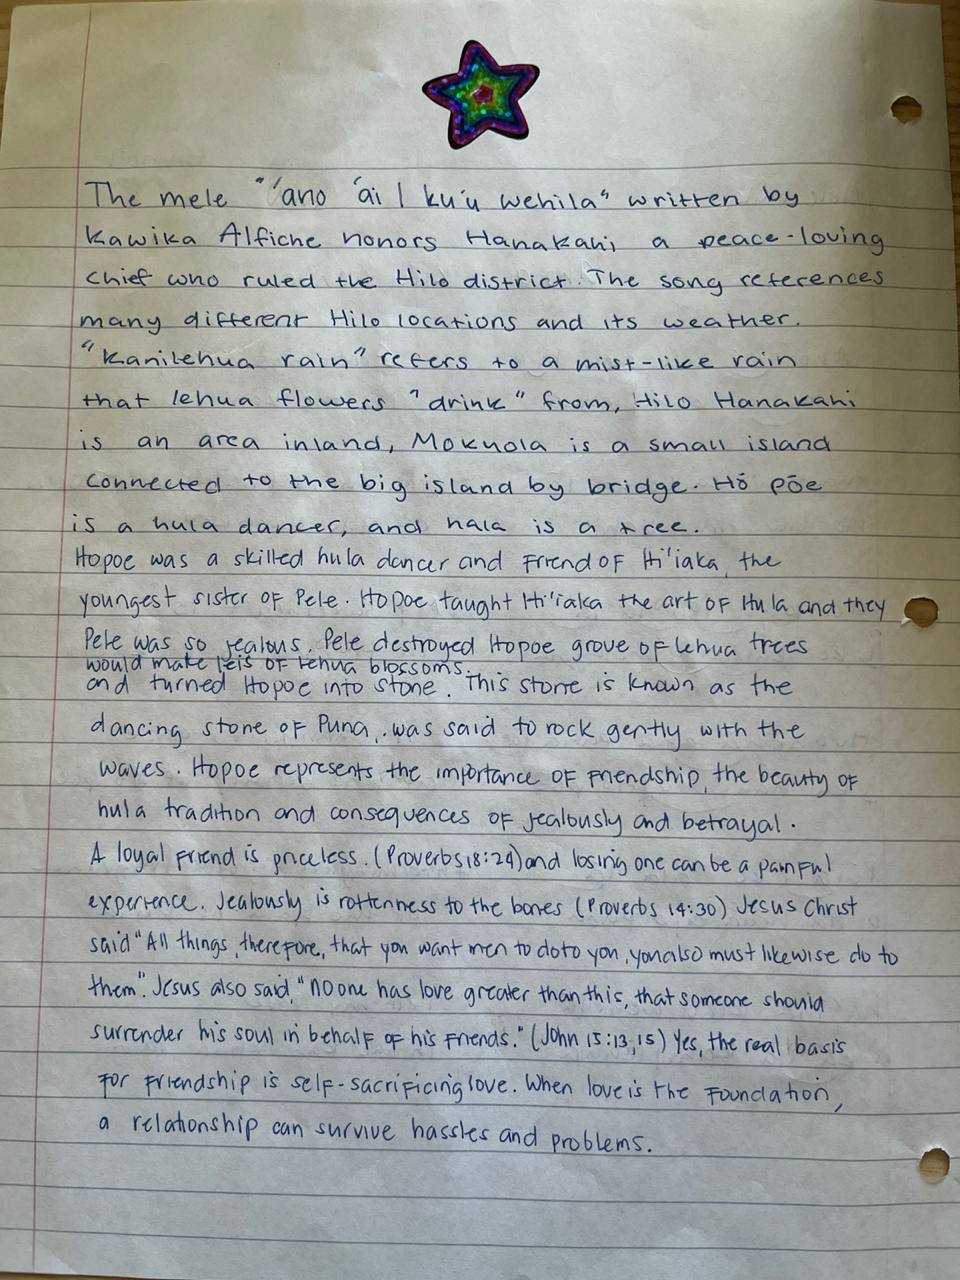 The mele "'ano 'ai | ku'u wehila" written by
Kawika Alfiche honors Hanakahi, a peace-loving
chief who ruled the Hilo district. The song references
many different Hilo locations and its weather.
"Kanilehua rain" refers to a mist-like rain
that lehua flowers "drink" from, Hilo Hanakahi
is an area inland, Mokuola is a small island
connected to the big island by bridge. Hō pōe
is a hula dancer, and hala is a tree.
Hopoe was a skilled hula dancer and friend of Hi'iaka, the
youngest sister of Pele. Hopoe taught Hi'iaka the art of Hula and they
Pele was so jealous. Pele destroyed Hopoe grove of lehua trees
would make leis of lehua blossoms.
and turned Hopoe into stone. This stone is known as the
dancing stone of Puna, was said to rock gently with the
waves. Hopoe represents the importance of friendship, the beauty of
hula tradition and consequences of jealously and betrayal.
A loyal friend is priceless. (Proverbs 18:24) and losing one can be a painful
experience. Jealously is rottenness to the bones (Proverbs 14:30) Jesus Christ
said "All things, therefore, that you want men to do to you, you also must likewise do to
them". Jesus also said, "no one has love greater than this, that someone should
surrender his soul in behalf of his friends." (John 15:13,15) Yes, the real basis
for friendship is self-sacrificing love. When love is the foundation,
a relationship can survive hassles and problems.